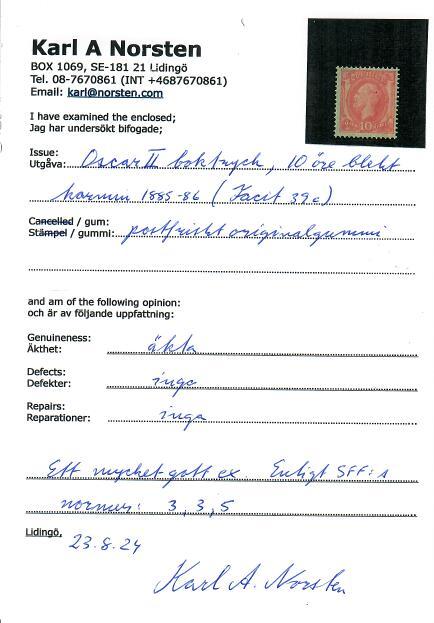 Karl A Norsten
BOX 1069, SE-181 21 Lidingö
Tel. 08-7670861 (INT +4687670861)
Email: karl@norsten.com
I have examined the enclosed;
Jag har undersökt bifogade;
Issue:
Utgåva: Oscar II boktryck, 10 öre blekt
karmin 1885-86 (Facit 39c)
Cancelled / gum:
Stämpel / gummi: postfriskt originalgummi
and am of the following opinion:
och är av följande uppfattning:
Genuineness:
Äkthet: äkta
Defects:
Defekter: inga
Repairs:
Reparationer: inga
Ett mycket gott ex. Enligt SFF:s
normer: 3, 3, 5
Lidingö, 23.8.24
Karl A. Norsten